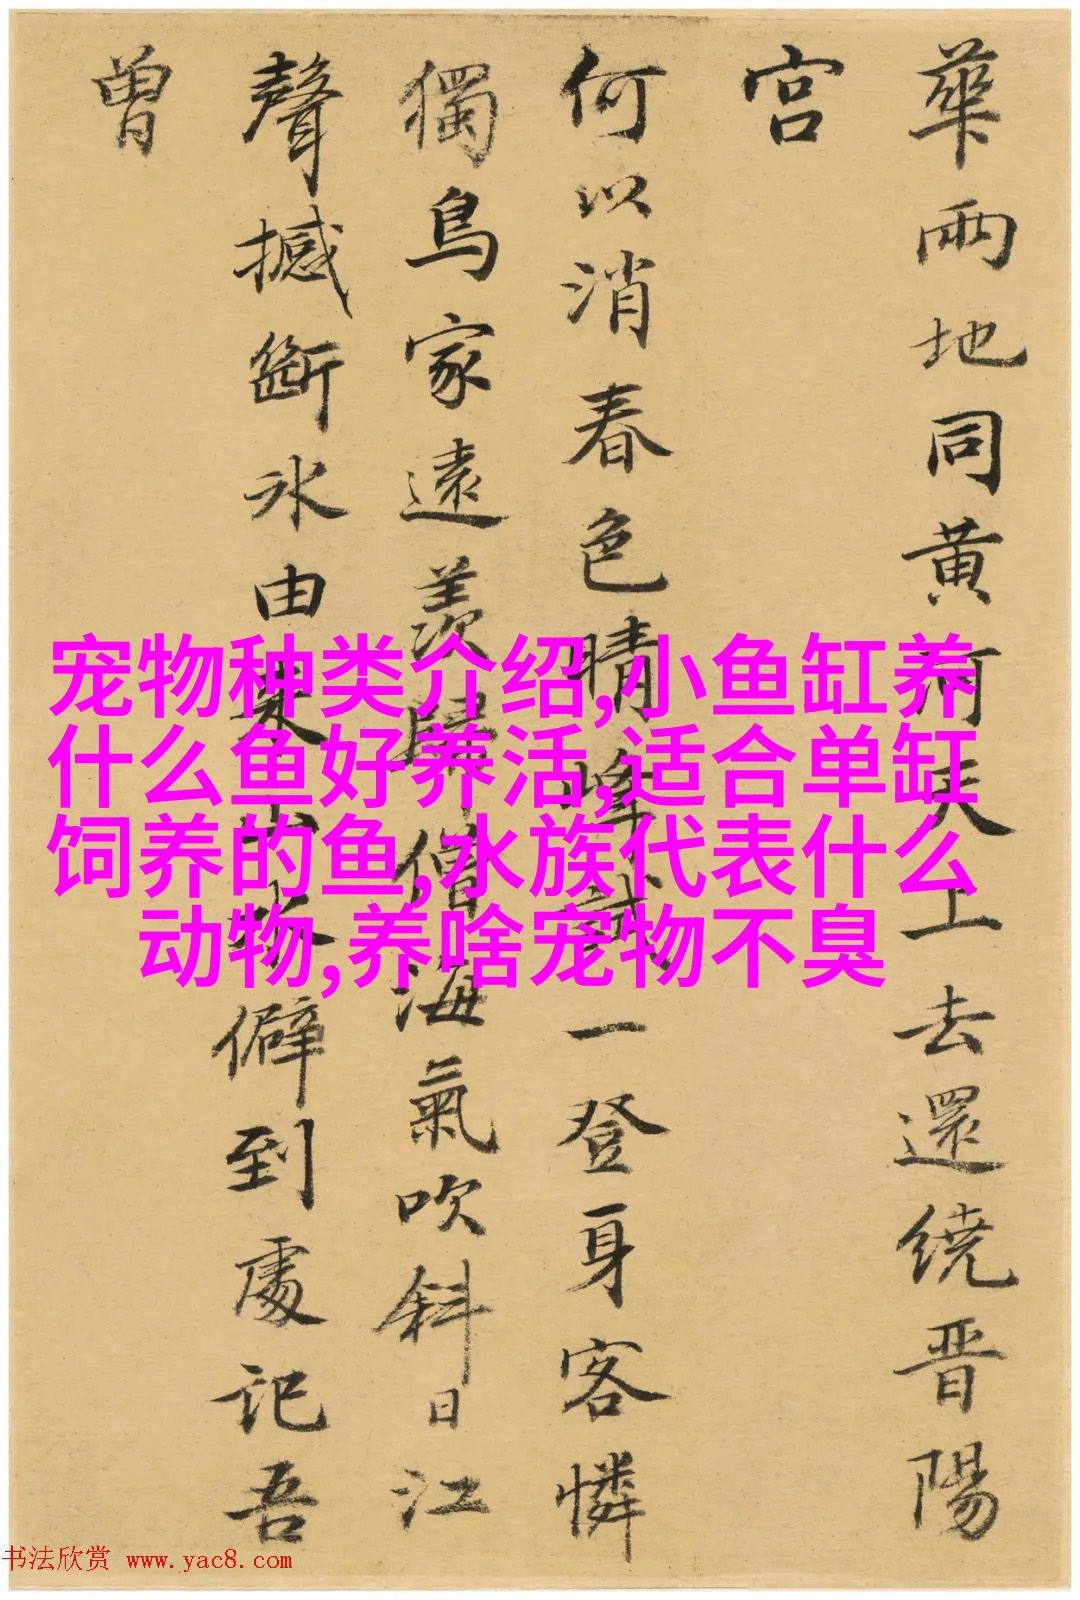 華兩地同黃河天上去還繞晋陽
宫
何以消春色晴峰試一登身客憐
獨鳥家遠羨歸僧海氣吹斜日江
聲撼斷冰由來山水僻到處記吾
曾
宠物种类介绍,小鱼缸养
什么鱼好养活,适合单缸
饲养的鱼,水族代表什么
动物,养啥宠物不臭
书法欣赏 www.yac8.com